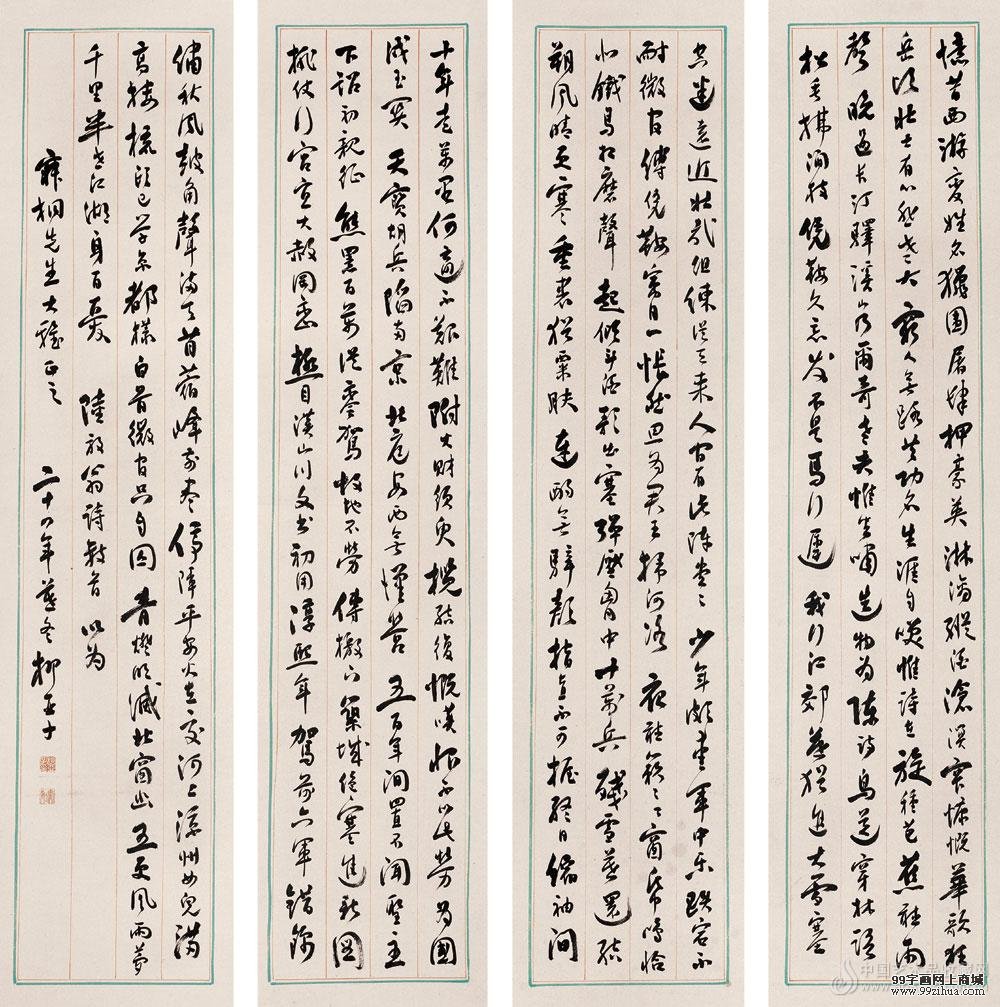 憶昔西游變姓名獵圍屠肆狎豪英淋漓縱酒滄溟窄慷慨華歌狂
岳傾壯士有心悲老大窮人無路共功名生涯自笑惟詩在旋種芭蕉聽雨
聲 晚過長汀驛溪山乃爾奇老夫惟坐嘯造物為陳詩鳥送穿林語
松垂拂澗枝憑鞍久忘發不是馬行遲 我行江郊暮猶進大雪塞
空迷遠近壯哉組練從天來人間有此陣堂堂 少年頗愛軍中樂跌宕不
耐微官縛憑鞍寓目一悵然思為君王掃河洛 夜聽簌簌窗紙鳴恰
似鐵馬相磨聲 起傾斗酒歌出塞彈壓胸中十萬兵 殘雪暮還結
朔風晴更寒重裘猶粟膚連酌無騂顏指直不可握終日縮袖間
十年走萬里何適不艱難附火財須臾攬轡復慨嘆恨不以此勞為國
戍玉關 天寶胡兵陷兩京北庭安西無漢營五百年間置不問聖主
下詔初親征熊羆百萬從鑾駕故地不勞傳檄下築城絕塞進新圖
排仗行宮宣大赦岡巒極目漢山川文書初用淳熙年駕前六軍錯錦
繡秋風鼓角聲滿天苜蓿峰前盡停障平安火在交河上涼州女兒滿
高樓梳頭已學京都樣白首微官只自囚青燈明滅北窗幽五更風雨夢
千里半世江湖身百憂 陸放翁詩數首 以為
寐桐先生大雅正之 二十四年暮冬柳亞子
99字画网上商城
www.99zihua.com